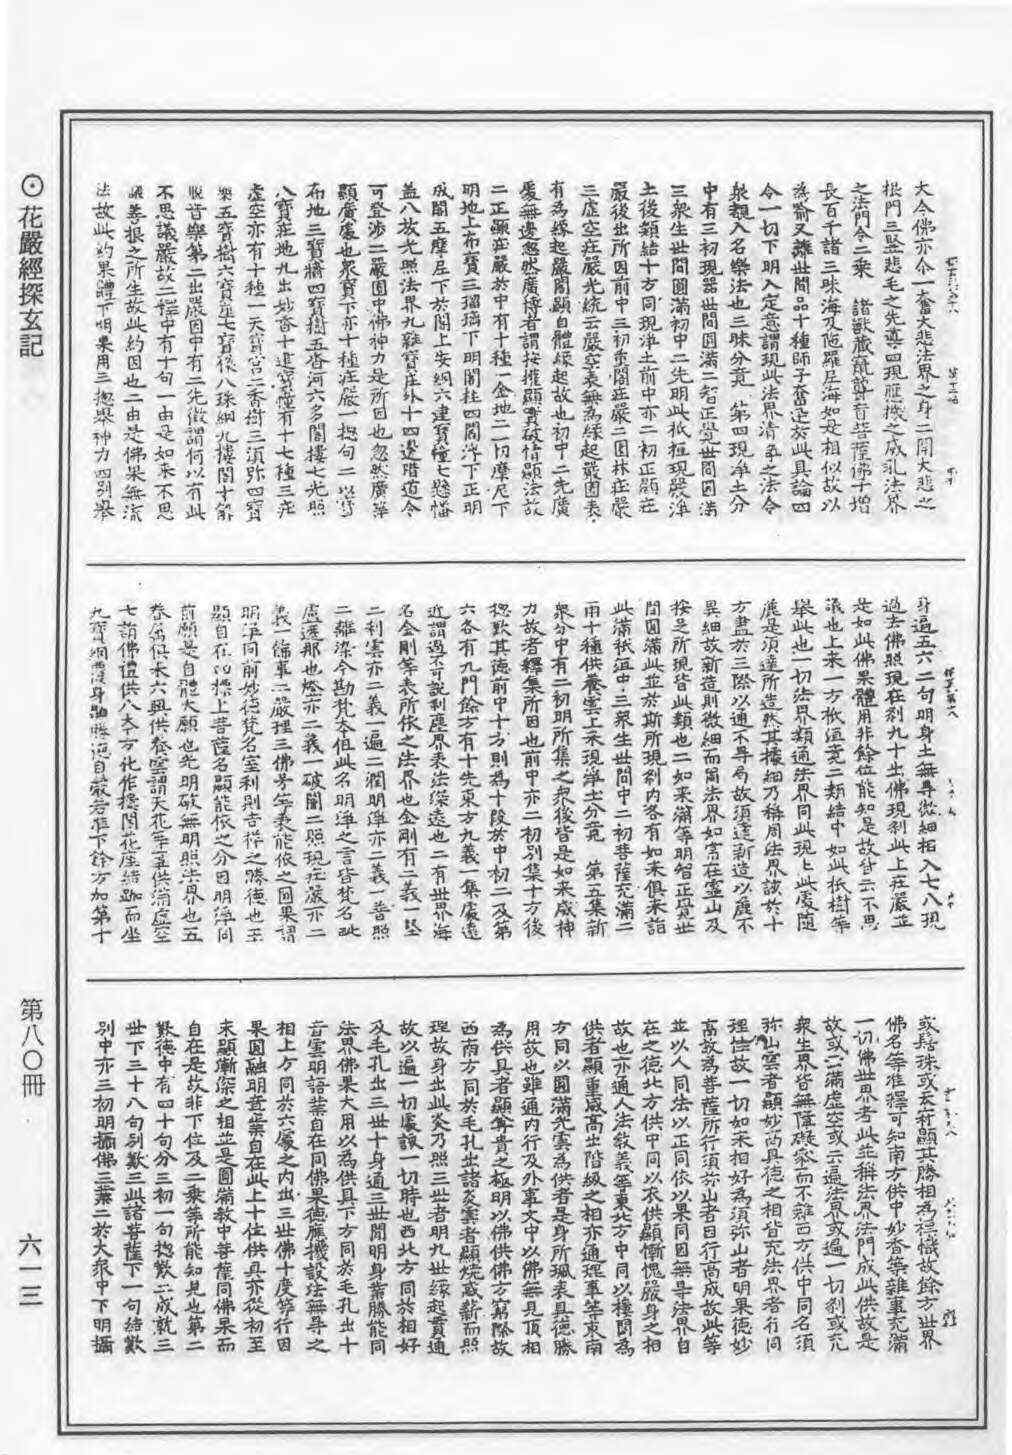 ⊙花嚴經探玄記
第八〇冊
六一三
大今佛亦令一奮大悲法界之身二開大悲之
根門三竪悲毛之先導四現應機之威乳法界
之法門令二乘 諸獸藏竄聾盲菩薩佛子增
長百千諸三昧海及陁羅尼海如是相似故以
為喻又離世間品十種師子奮迅於此具論四
令一切下明入定意謂現此法界清淨之法令
衆覩入名樂法也三昧分竟 第四現淨土分
中有三初現器世間圓滿二智正覺世間圓滿
三衆生世間圓滿初中二先明此祇桓現嚴淨
土後類結十方同現淨土前中亦二初正顯莊
嚴後出所因前中三初重閣莊嚴二園林莊嚴
三虛空莊嚴光統云嚴空表無為緣起嚴園表
有為緣起嚴閣顯自體緣起故也初中二先廣
處無邊忽然廣博者謂按權顯實破情顯法故
二正顯莊嚴於中有十種一金地二一切摩尼下
明地上布寶三瑠璃下明閣柱四閻浮下正明
成閣五摩尼下於閣上安網六建寶幢七懸幡
蓋八放光照法界九雜寶莊外十四邊階道令
可登涉二嚴園中佛神力是所因也忽然廣等
顯廣處也衆寶下亦十種莊嚴一揔句二以寶
布地三寶牆四寶樹五香河六多閣樓七光照
八寶莊地九出妙香十建寶幢有十七種三莊
虛空亦有十種一天寶宮二香樹三須弥四寶
樂五寶樹六寶座七寶像八珠網九樓閣十觧
脫音樂第二出嚴因中有二先徵謂何以有此
不思議嚴故二釋中有十句一由是如來不思
議善根之所生故此約因也二由是佛果無流
法故此約果體下明果用三揔舉神力四別舉
身遍五六二句明身土無㝵微細相入七八現
過去佛照現在剎九十出佛現剎此上莊嚴並
是如此佛果體用非餘位能知是故皆云不思
議也上來一方祇洹竟二類結中如此祇樹等
舉此也一切法界類通法界同此現上此處随
麁是須達所造然其據細乃稱周法界該於十
方盡於三際以通不㝵局故須達新造以麁不
異細故新造則微細而周法界如常在靈山及
按足所現皆此類也二如來滿等明智正覺世
間圓滿此並於斯所現剎內各有如來俱來詣
此滿祇洹中三衆生世間中二初菩薩充滿二
雨十種供養雲上來現淨土分竟 第五集新
衆分中有二初明所集之衆後皆是如來威神
力故者釋集所因也前中亦二初別集十方後
揔歎其德前中十方則為十段於中初二及第
六各有九門餘方有十先東方九義一集處遠
近謂過不可說剎塵界表法深遠也二有世界海
名金剛等表所依之法界也金剛有二義一堅
二利雲亦二義一遍二潤明淨亦二義一普照
二離染今勘梵本但此名明淨之言皆梵名毗
盧遮那也燈亦二義一破闇二照現莊嚴亦二
義一備事二嚴理三佛号等表能依之圓果謂
明淨同前妙德梵名室利則吉祥之勝德也王
顯自在四標上首菩薩名顯能依之分因明淨同
前願是自體大願也光明破無明照法界也五
眷属俱來六興供養雲謂天花等五供滿虛空
七詣佛禮供八本方化作樓閣化座結跏而坐
九寶網覆身融勝德自嚴若准下餘方加第十
或髻珠或衣等顯其勝相為福幟故餘方世界
佛名等准釋可知南方供中妙香等雜事充滿
一切佛世界者此並稱法界法門成此供故是
故或云滿虛空或云遍法界或遍一切剎或充
衆生界皆無障礙密而不雜西方供中同名須
弥山雲者顯妙高具德之相皆充法界者行同
理位故一切如來相好為須弥山者明果德妙
高故為菩薩所行須弥山者因行高成故此等
並以人同法以正同依以果同因無㝵法界自
在之德北方供中同以衣供顯慚愧嚴身之相
故也亦通人法敘義等東北方中同以樓閣為
供者顯重威高出階級之相亦通理事等東南
方同以圓滿光雲為供者是身所珮表具德勝
用故也雖通內行及外事文中以佛無見頂相
為供具者顯尊貴之極明以佛供佛方窮際故
西南方同於毛孔出諸炎雲者顯燒惑薪而照
理故身出此炎乃照三世者明九世緣起貫通
故以遍一切處該一切時也西北方同於相好
及毛孔出三世十身通三世閒明身業勝能同
法界佛果大用以為供具下方同於毛孔出十
音雲明語業自在同佛果德應機設法無㝵之
相上方同於六處之內出三世佛十度等行因
果圓融明意業自在此上十位供具亦從初至
末顯漸深之相並是圓滿教中普薩同佛果而
自在是故非下位及二乘等所能知見也第二
歎德中有四十句分三初一句揔歎二成就三
世下三十八句別歎三此諸菩薩下一句結歎
別中亦三初明攝佛三業二於大衆中下明攝